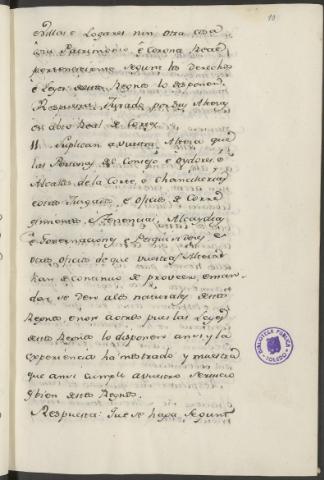 10
e villas e Logares nin otra cosa
a su Patrimonio, e Corona Real
pertenecientes segun los derechos
e Leyes destos Reynos lo disponen.
Respuesta: Jurado por sus Altezas
11 suplican a vuestra Alteza que
las Personas del Consejo e oydores e
Alcaldes de la Corte, e Chancillerias
e otros Juzgados, e oficios de Corre
gimientos, e Tenencias, Alcaydias
e Governaciones, e Pesquisidores e
otros oficios de que vuestras Altezas
han de continuo de proveer, e man
dar se den a los naturales destos
Reynos, e non a otros pues las Leyes
destos Reynos lo disponen ansi y la
experiencia ha mostrado y muestra
que ansi cumple a vuestro servicio
y bien destos Reynos.
Respuesta: Que se haga segunt
BIBLIOTECA PÚBLICA
TOLEDO